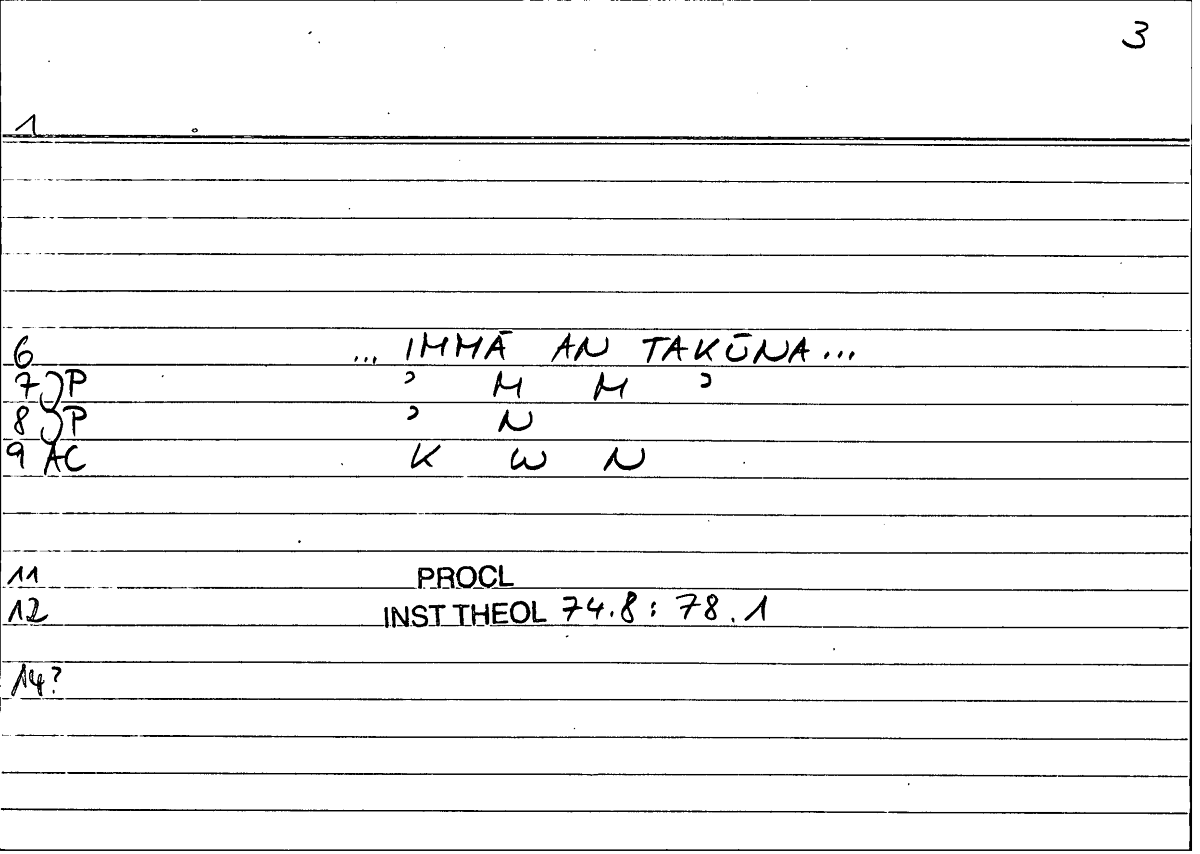 3
1
6 ... IMMĀ AN TAKŪNA ...
7 P ʾ M M ʾ
8 P ʾ N
9 AC K W N
11 PROCL
12 INST THEOL 74.8 : 78.1
14?